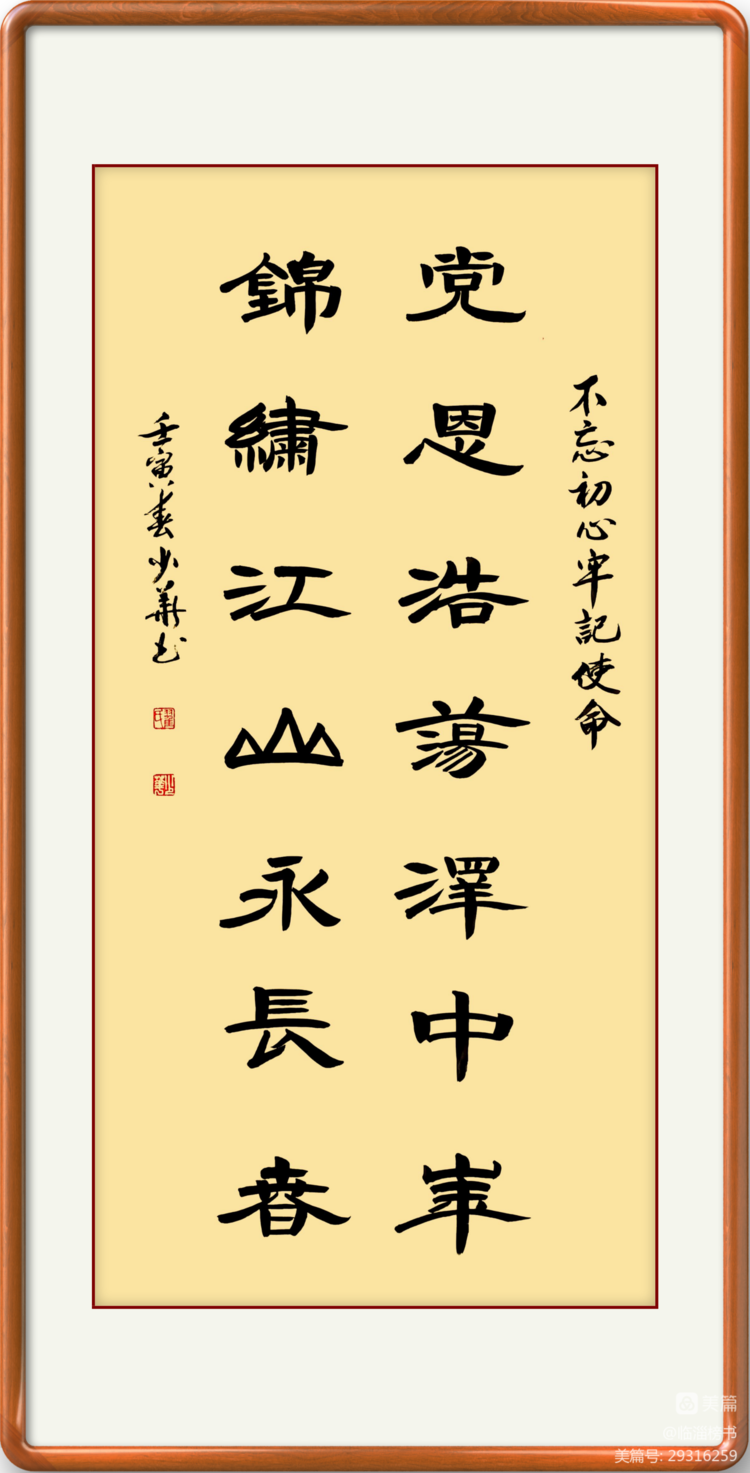 不忘初心牢記使命
党恩浩蕩澤中華
錦繡江山永長春
壬寅春少華书
美篇
美篇号: 29316259